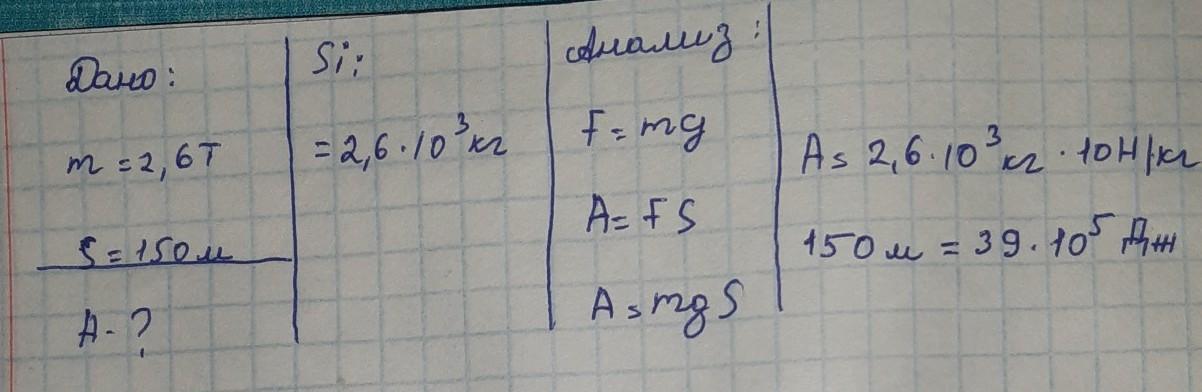 Дано:
m = 2,6 т
S = 150 м
A - ?
Si:
= 2,6 · 10³ кг
Анализ:
F = mg
A = FS
A = mgS
A = 2,6 · 10³ кг · 10 Н/кг
150 м = 39 · 10⁵ Дж